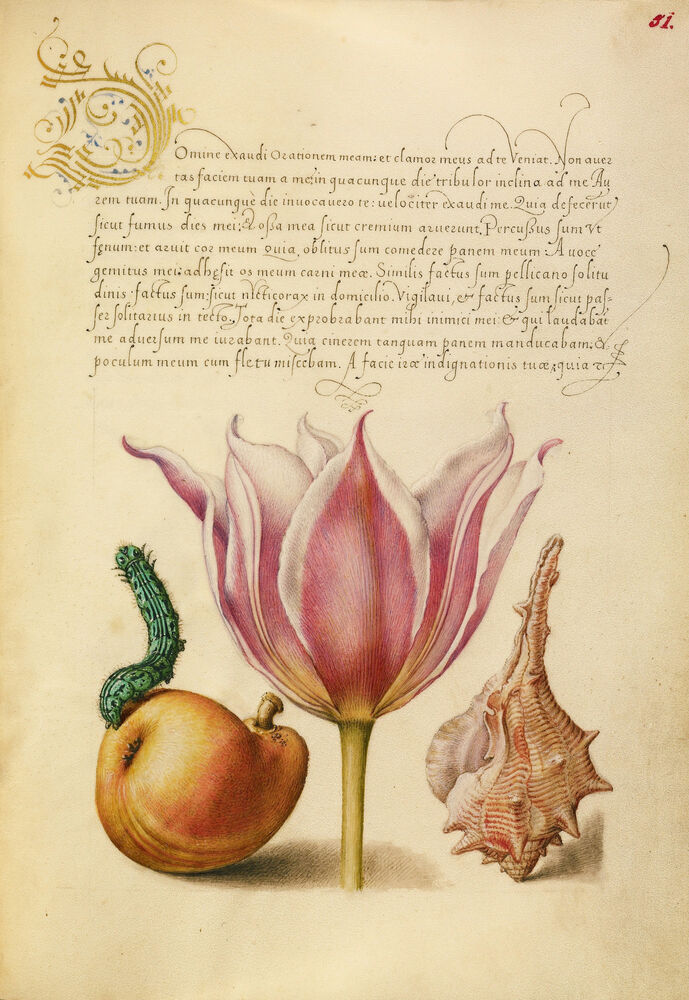 51.
Domine exaudi Orationem meam: et clamor meus ad te Veniat. Non auer
tas faciem tuam a me: in quacunque die tribulor inclina ad me Au
rem tuam. In quacunque die inuocauero te: uelociter exaudi me. Quia defecerūt
sicut fumus dies mei: & ossa mea sicut cremium aruerunt. Percussus sum Vt
fęnum: et aruit cor meum Quia, oblitus sum comedere panem meum. A uoce
gemitus mei: adhęsit os meum carni meæ. Similis factus sum pellicano solitu
dinis: factus sum: sicut nicticorax in domicilio. Vigilaui, & factus sum sicut pas-
ser solitarius in tecto. Tota die exprobrabant mihi inimici mei: & qui laudabāt
me aduersum me iurabant. Quia cinerem tanquam panem manducabam: &
poculum meum cum fletu miscebam. A facie iræ indignationis tuæ: quia